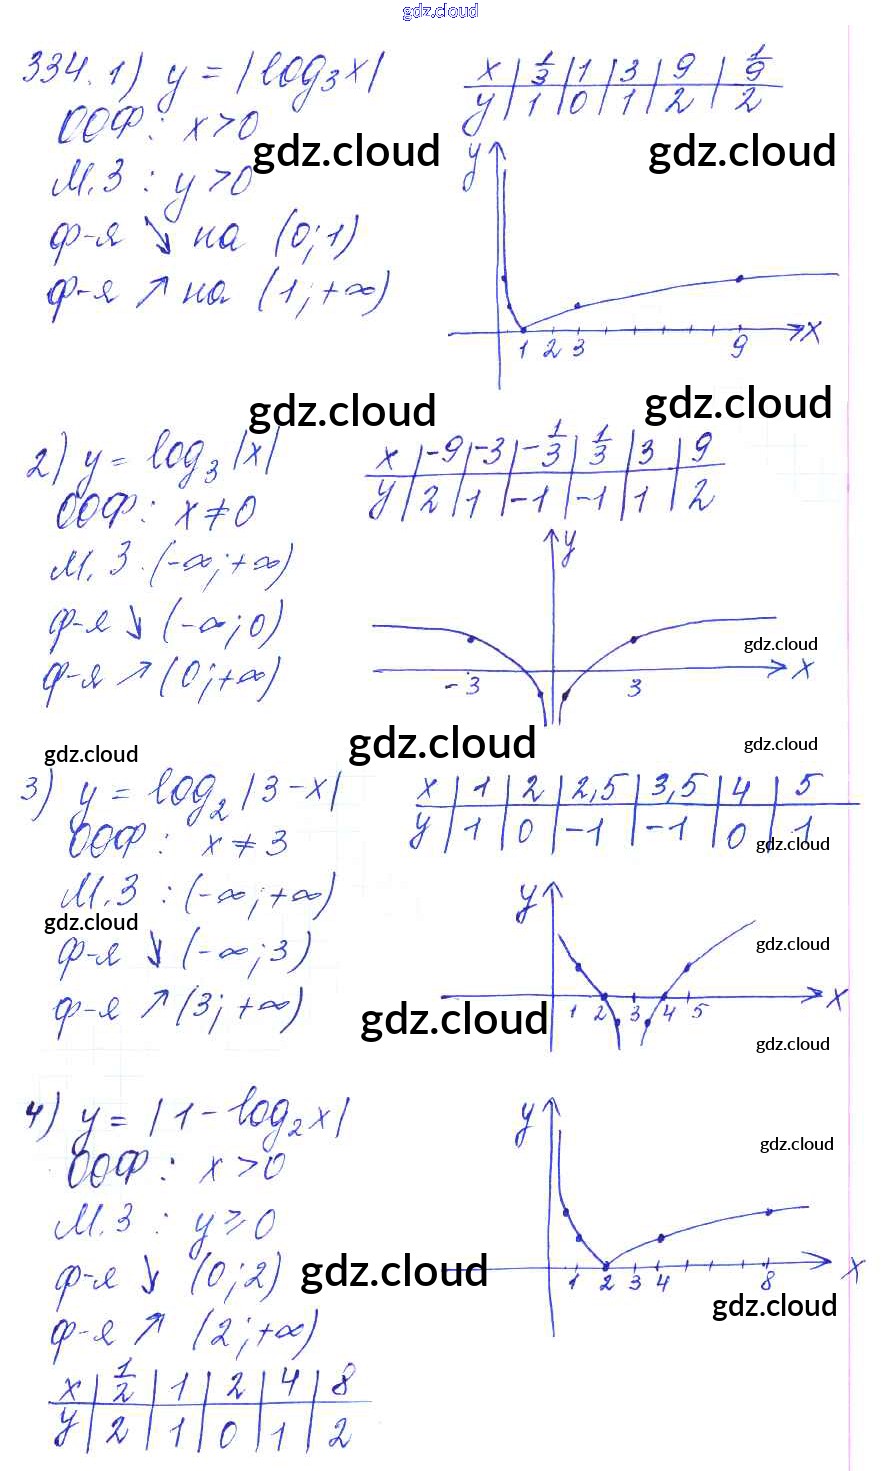 gdz.cloud
334. 1) y = |log₃x|
ООФ: x > 0
М.З : y > 0
ф-я ↘ на (0; 1)
ф-я ↗ на (1; +∞)
x | 1/3 | 1 | 3 | 9 | 1/9
y | 1 | 0 | 1 | 2 | 2
gdz.cloud
gdz.cloud
y
1 2 3 9 x
gdz.cloud
gdz.cloud
2) y = log₃|x|
ООФ: x ≠ 0
М.З. (-∞; +∞)
ф-я ↘ (-∞; 0)
ф-я ↗ (0; +∞)
x | -9 | -3 | -1/3 | 1/3 | 3 | 9
y | 2 | 1 | -1 | -1 | 1 | 2
y
-3 3 x
gdz.cloud
gdz.cloud
gdz.cloud
gdz.cloud
3) y = log₂|3-x|
ООФ: x ≠ 3
М.З : (-∞; +∞)
ф-я ↘ (-∞; 3)
ф-я ↗ (3; +∞)
x | 1 | 2 | 2,5 | 3,5 | 4 | 5
y | 1 | 0 | -1 | -1 | 0 | 1
gdz.cloud
y
gdz.cloud
gdz.cloud
1 2 3 4 5 x
gdz.cloud
gdz.cloud
4) y = |1 - log₂x|
ООФ: x > 0
М.З : y ⩾ 0
ф-я ↘ (0; 2)
ф-я ↗ (2; +∞)
y
gdz.cloud
gdz.cloud
1 2 3 4 8 x
gdz.cloud
x | 1/2 | 1 | 2 | 4 | 8
y | 2 | 1 | 0 | 1 | 2